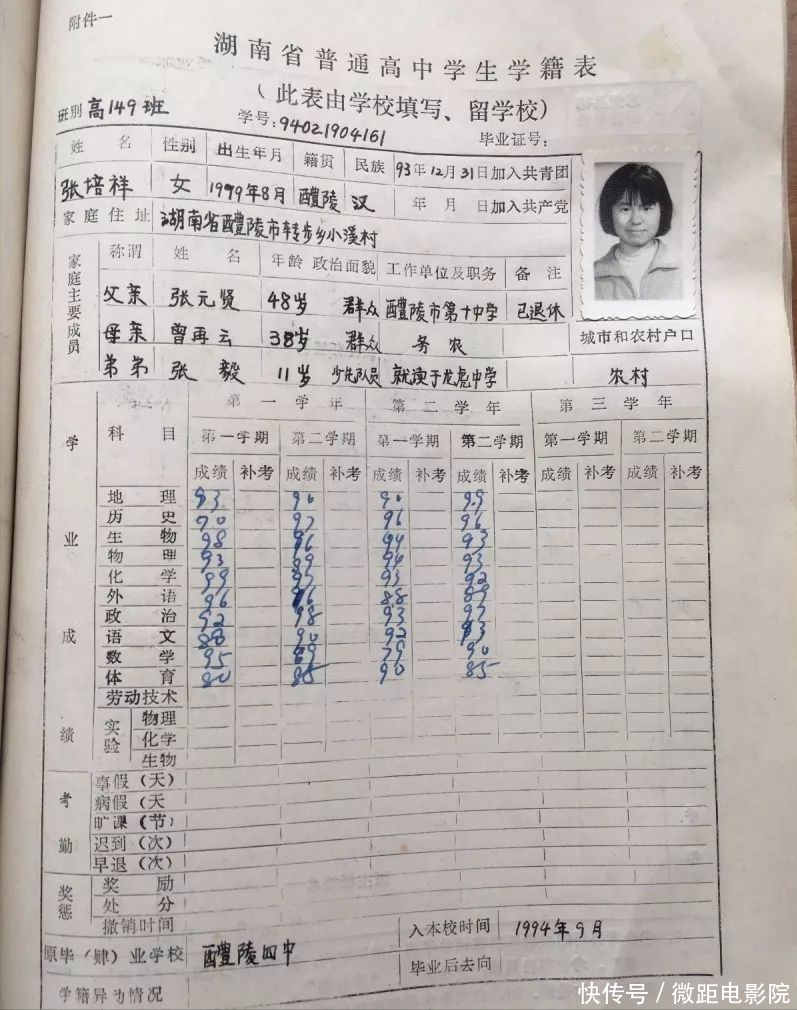 附件一
湖南省普通高中学生学籍表
（此表由学校填写、留学校）
班别 高149班 学号:94021904161 毕业证号:
姓名 性别 出生年月 籍贯 民族 93年12月31日加入共青团
张培祥 女 1979年8月 醴陵 汉 年月日加入共产党
家庭住址 湖南省醴陵市转步乡小溪村
家庭主要成员 称谓 姓名 年龄 政治面貌 工作单位及职务 备注
父亲 张元贤 48岁 群众 醴陵市第十中学 已退休
母亲 曾再云 38岁 群众 务农 城市和农村户口
弟弟 张毅 11岁 少先队员 就读于龙虎中学 农村
学业成绩 科目 第一学年 第二学年 第三学年
第一学期 第二学期 第一学期 第二学期 第一学期 第二学期
成绩 补考 成绩 补考 成绩 补考 成绩 补考 成绩 补考 成绩 补考
地理 93 90 90 99
历史 90 97 96 96
生物 98 96 94 93
物理 93 89 94 93
化学 99 97 93 92
外语 96 96 88 89
政治 92 98 93 97
语文 88 90 92 93
数学 95 89 79 90
体育 80 85 90 85
劳动技术
实验 物理
化学
生物
考勤 事假（天）
病假（天
旷课（节）
迟到（次）
早退（次）
奖惩 奖励
处分
撤销时间
原毕（肄）业学校 醴陵四中 入本校时间 1994年9月
毕业后去向
学籍异动情况
快传号／微距电影院